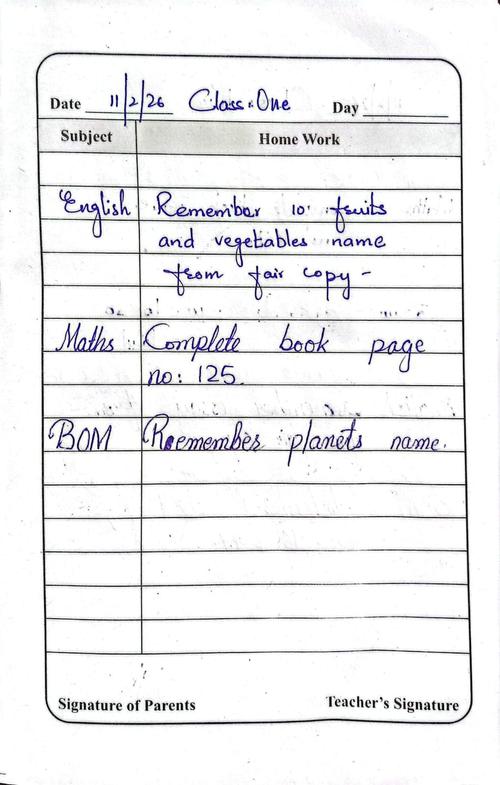 Date 11/2/26 Class:One Day
Subject Home Work
English Remember 10 fruits
and vegetables name
from fair copy -
Maths : Complete book page
no: 125.
BOM Reemember planets name.
Signature of Parents Teacher's Signature